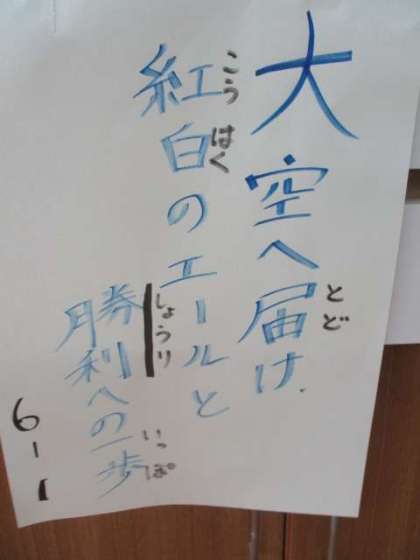 大空へ届け
紅白のエールと
勝利への一歩
とど
こうはく
しょうり
いっぽ
6-1